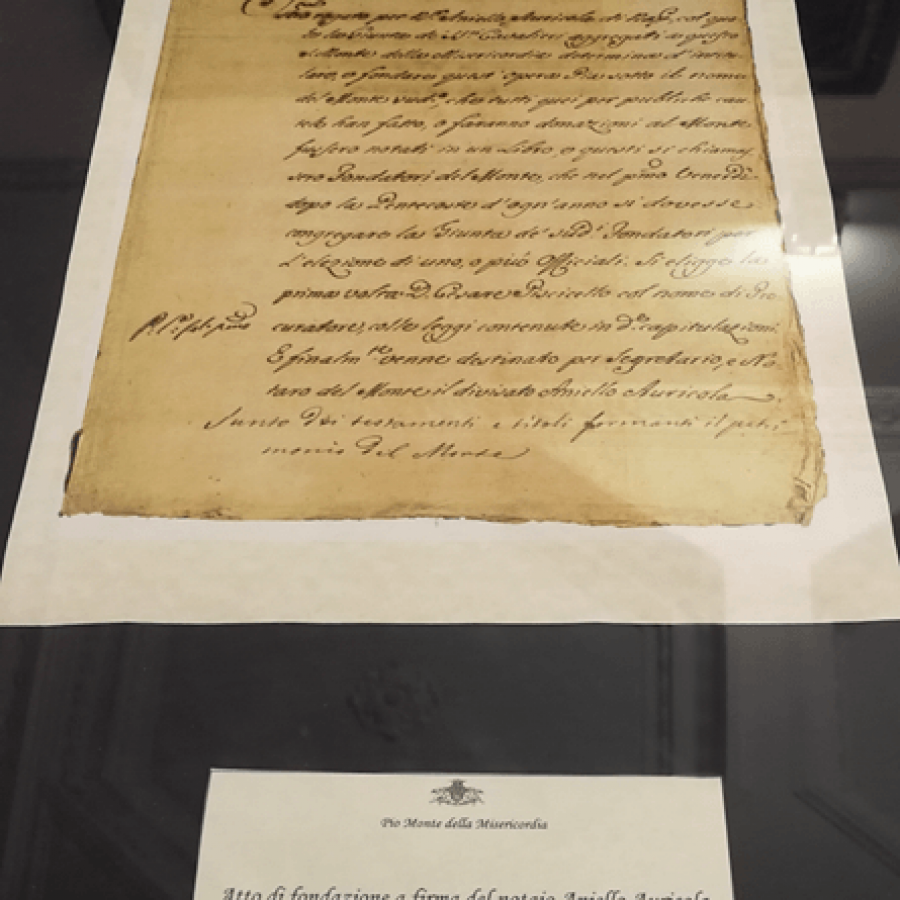 Istro rogato per N.r Aniello Auricola di Nap., col qua-
le la Giunta de N.ri Cavalieri aggregati a questo
Monte della Misericordia determina d'intito-
lare, o fondare quest'opera Pia sotto il nome
del Monte sud.o, che tutti quei per publiche cau-
tele han fatto, o faranno donazioni al Monte
fussero notati in un Libro, e questi si chiamas-
sero Fondatori del Monte, che nel pmo Venerdì
dopo la Pentecoste d'ogn'anno si dovesse
congregare la Giunta de' sud.i Fondatori per
l'elezione di uno, o più Officiali. Si eligge la
prima volta D. Cesare Piscicello col nome di Pro
curatore, colle leggi contenute in d.e capitulazioni.
E finalm.te venne destinato per Segretario, e No-
taro del Monte il divisato Aniello Auricola
Sunto dei testamenti e titoli formanti il patri
monio del Monte
Pio Monte della Misericordia
Atto di fondazione a firma del notaio Aniello Auricola